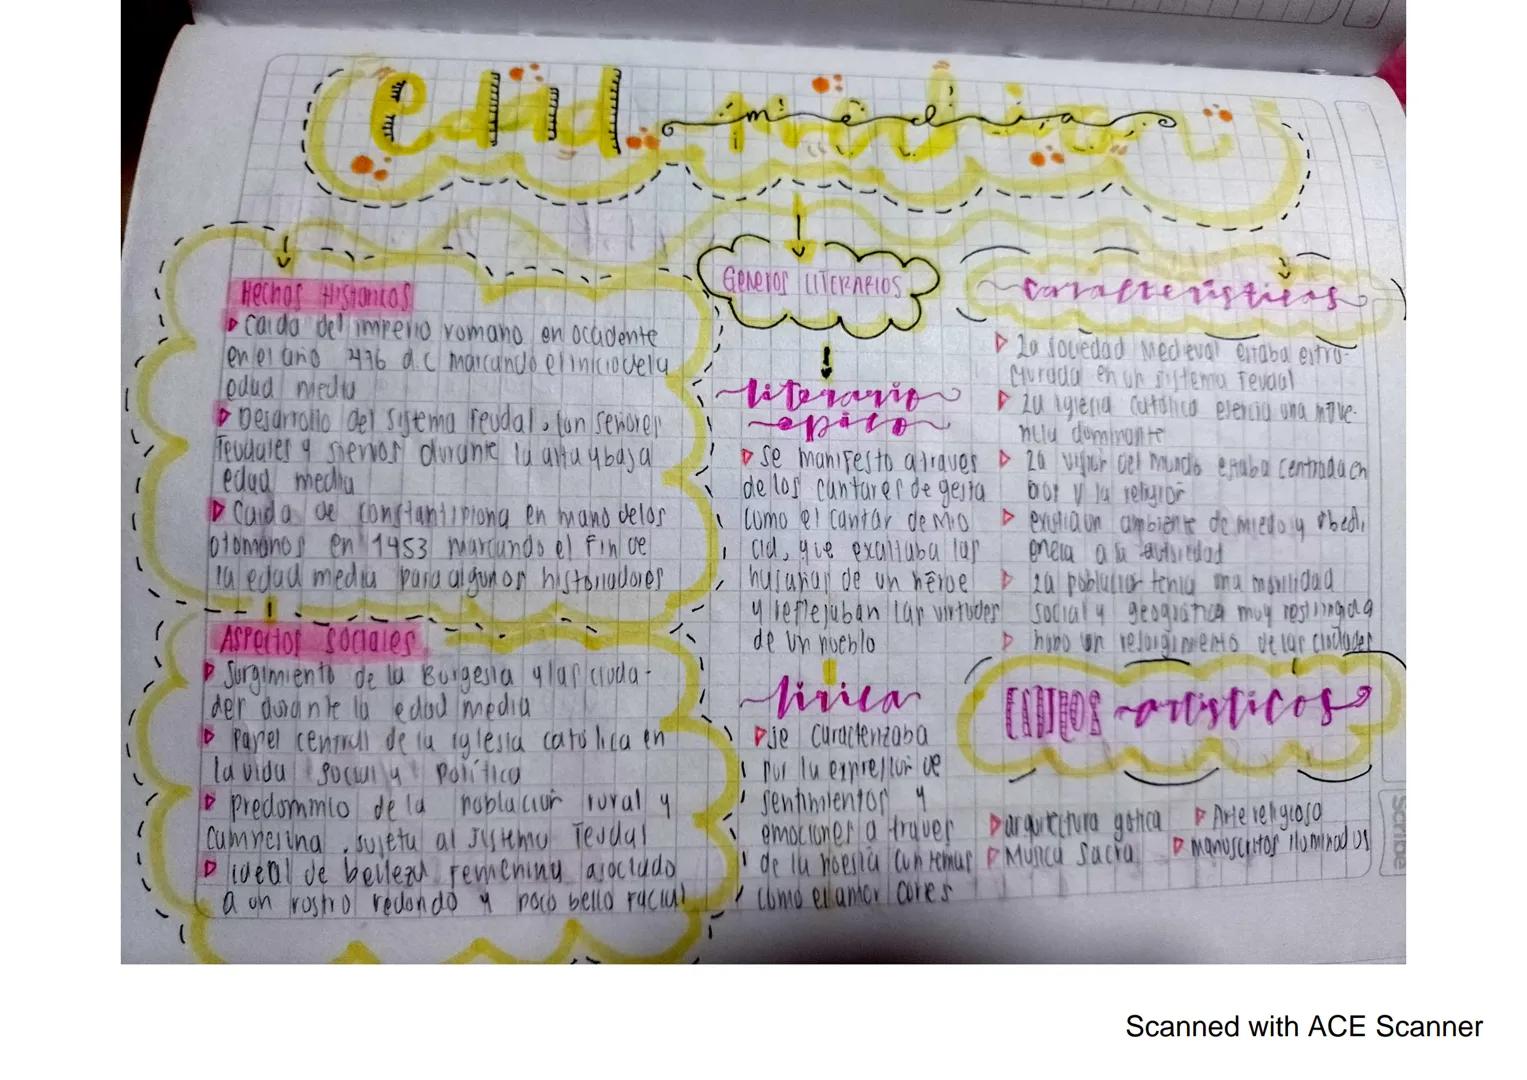 Edad media
Hechos Historicos
Caida del imperio romano en occidente
en el año 476 d.c marcando el inicio de la
edad media
Desarrollo del sistema feudal, con señores
feudales y siervos durante la alta y baja
edad media
Caida de constantinopla en mano de los
otomanos en 1453 marcando el fin de
la edad media para algunos historiadores
Aspectos sociales
Surgimiento de la Burgesia y las ciuda-
des durante la edad media
Papel central de la iglesia católica en
la vida social y política
predominio de la poblacion rural y
campesina, sujeta al sistema feudal
ideal de belleza femenina asociado
a un rostro redondo y poco bello facial
Generos LITERARIOS
literario
epico
se manifesto a traves
de los cantares de gesta
como el cantar de mio
cid, que exaltaba las
hazañas de un héroe
y reflejaban las virtudes
de un pueblo
lirica
se caracterizaba
por la expresion de
sentimientos y
emociones a traves
de la poesia con temas
como el amor cortes
características
La sociedad Medieval estaba estru-
cturada en un sistema feudal
La iglesia católica ejercia una influe-
ncia dominante
La vision del mundo estaba centrada en
Dios y la religion
existia un ambiente de miedo y obedi,
encia a la autoridad
La poblacion tenia una movilidad
social y geografica muy restringida
hubo un resurgimiento de las ciudades
artísticos
arquitectura gotica
Arte religioso
Musica sacra
manuscritos iluminados
Scribe
Scanned with ACE Scanner